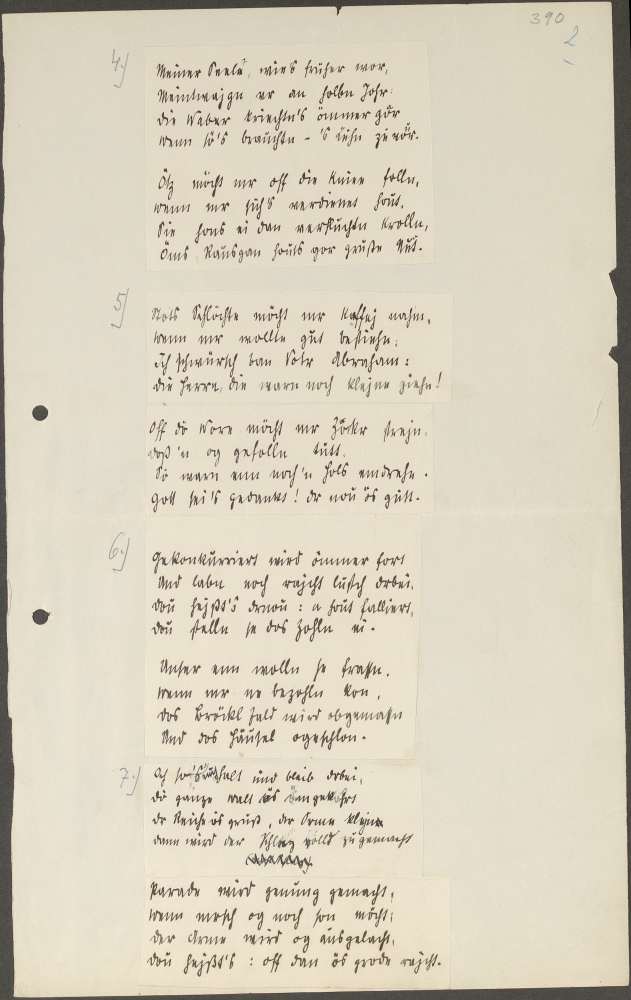 390
2
4.)
Meiner Seele, wie's früher wor,
Meintwajgn er an holbn Johr:
die Waber kriechta's ömmer gor
wenn se's brauchta - 's Juhr zuvör.
Öitz möcht mr off die Kniee folln,
wenn mr sich's verdienet hout.
Sie hons ei dan verfluchtn Krolln,
Öms Rausgan houts gor gruße Nut.
5)
Stots Schlöchte möcht mr Kaffej nahm,
wenn mr wollte gut bestiehn;
ich schwürsch ban Votr Abraham:
die Herrn, die warn noch klejne ziehn!
Off die Wore möcht mr Zockr strejn,
doß 'n og gefolln tutt.
So warn enn noch 'n Hols emdrehn.
Gott sei's gedankt! dr nou ös gutt.
6.)
Gekonkurriert wird ömmer fort
Und labn noch rajcht lustch drbei,
dou hejßt's drnou: a hout falliert,
dou stelln se dos Zohln ei.
Unser enn wolln se frassn,
wenn mr ne bezohln kon,
dos Bröckl Fald wird obgemassn
Und dos Häusel ogeschlon.
7.)
Och und bleib drbei,
di ganze Walt ös ömgekohrt
dr Reiche ös gruß, der Orme klejne
dann wird der voll zugemacht
Parade wird genung gemacht,
wenn mersch og noch son möcht;
der Arme wird og ausgelacht,
dou hejßt's: off dan ös grode rajcht.